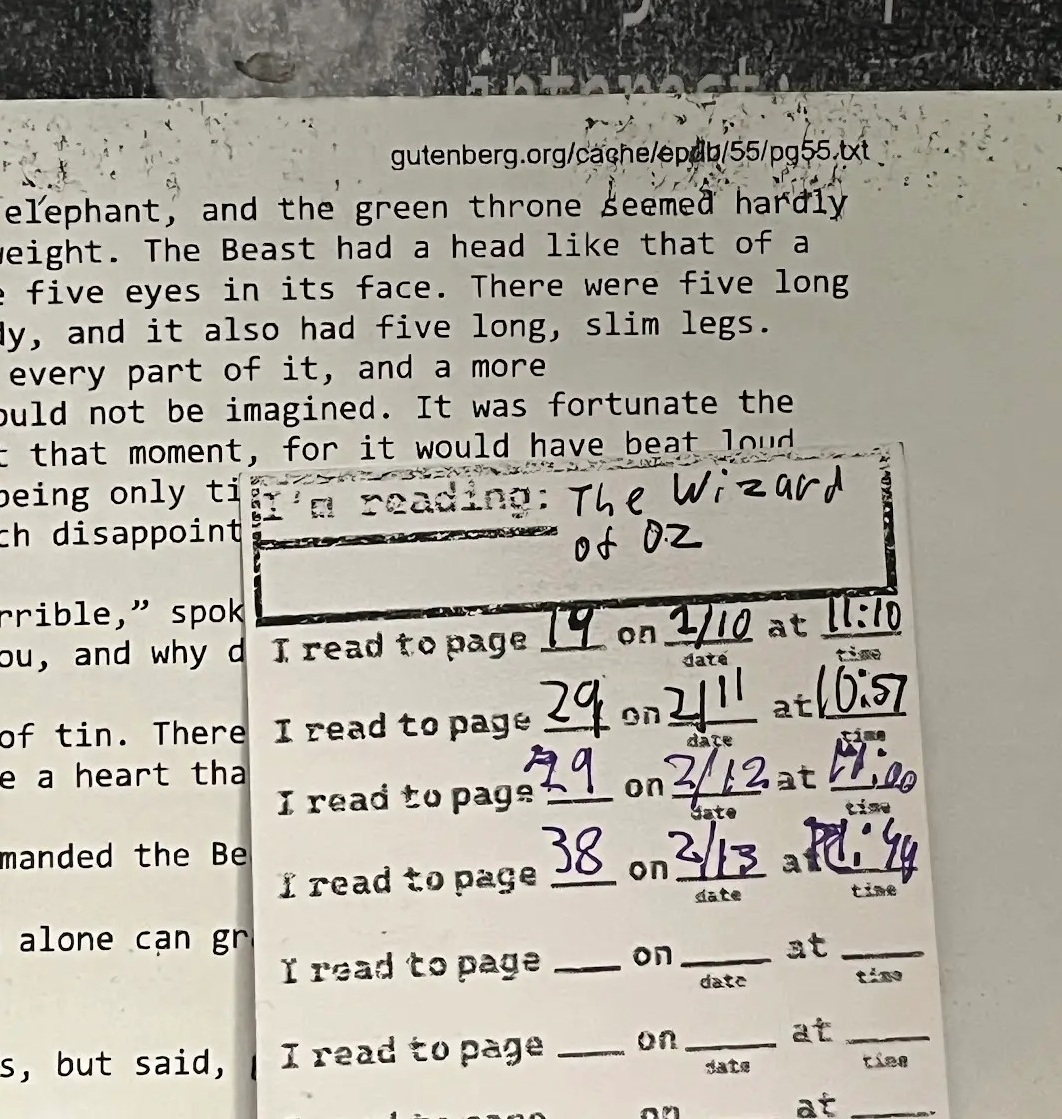 gutenberg.org/cache/epub/55/pg55.txt
elephant, and the green throne seemed hardly
weight. The Beast had a head like that of a
five eyes in its face. There were five long
and it also had five long, slim legs.
every part of it, and a more
ould not be imagined. It was fortunate the
that moment, for it would have beat loud
being only ti
ch disappoint
I'm reading: The Wizard
of OZ
rrible,” spok
I read to page 19 on 2/10 at 11:10
date time
ou, and why d
I read to page 29 on 2/11 at 10:57
date time
of tin. There
e a heart tha
I read to page 29 on 2/12 at
date time
manded the Be
I read to page 38 on 2/13 at
date time
alone can gr
I read to page ___ on ___ at ___
date time
I read to page ___ on ___ at ___
date time
s, but said,
on at